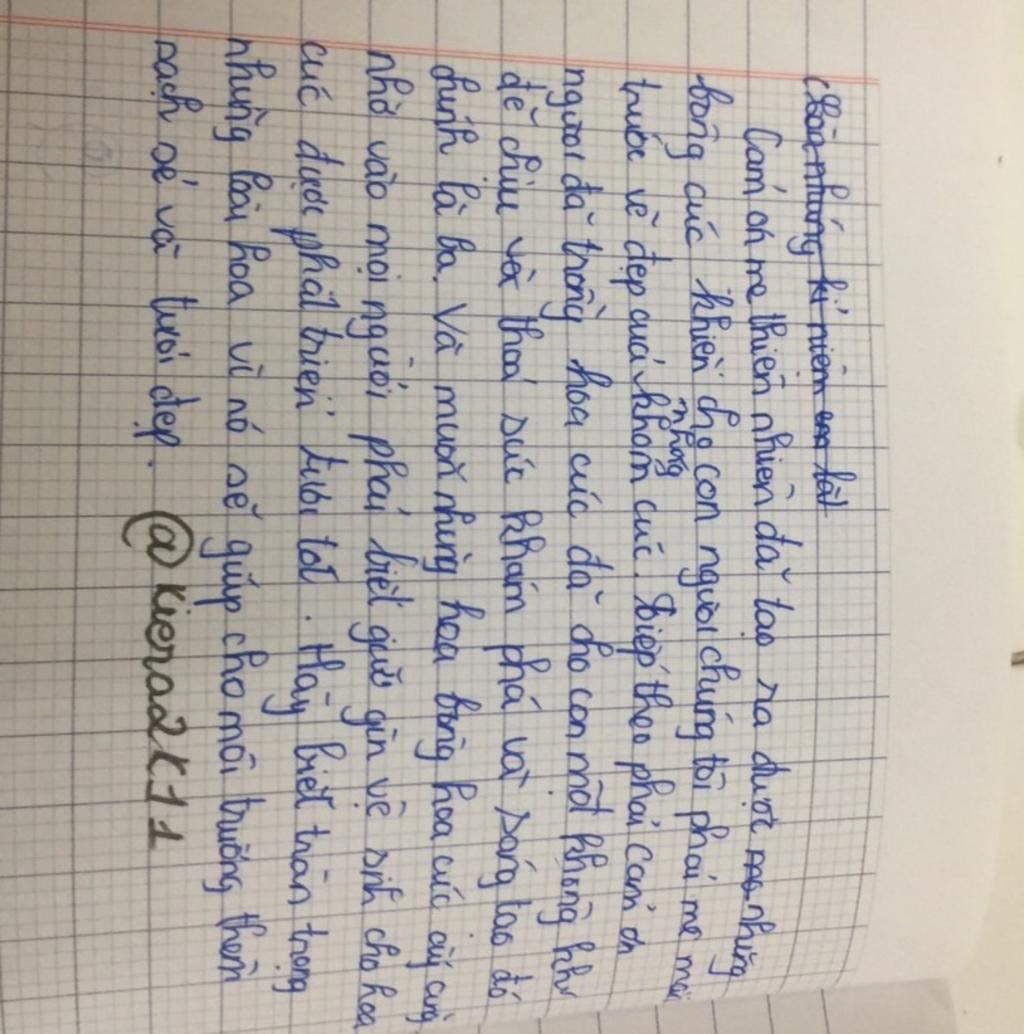 Chứa những kỉ niệm em lất
Cám ơn mẹ thiên nhiên đã tạo ra được mo những
bông cúc khiến cho con người chúng tôi phải mê mải
trước vẻ đẹp của những khóm cúc. Tiếp theo phải cảm ơn
người đã trồng hoa cúc đã cho con một không hhư
để chịu và thoả sức khám phá và sáng tạo đó
chính là ba. Và muốn những hoa bông hoa cúc ấy cũng
nhờ vào mọi người phải biết giữ gìn vệ sinh cho hoa
cúc được phát triển tươi tốt. Hãy biết trân trọng
những loài hoa vì nó sẽ giúp cho môi trường thêm
sạch sẽ và tươi đẹp.
@kiera2K11